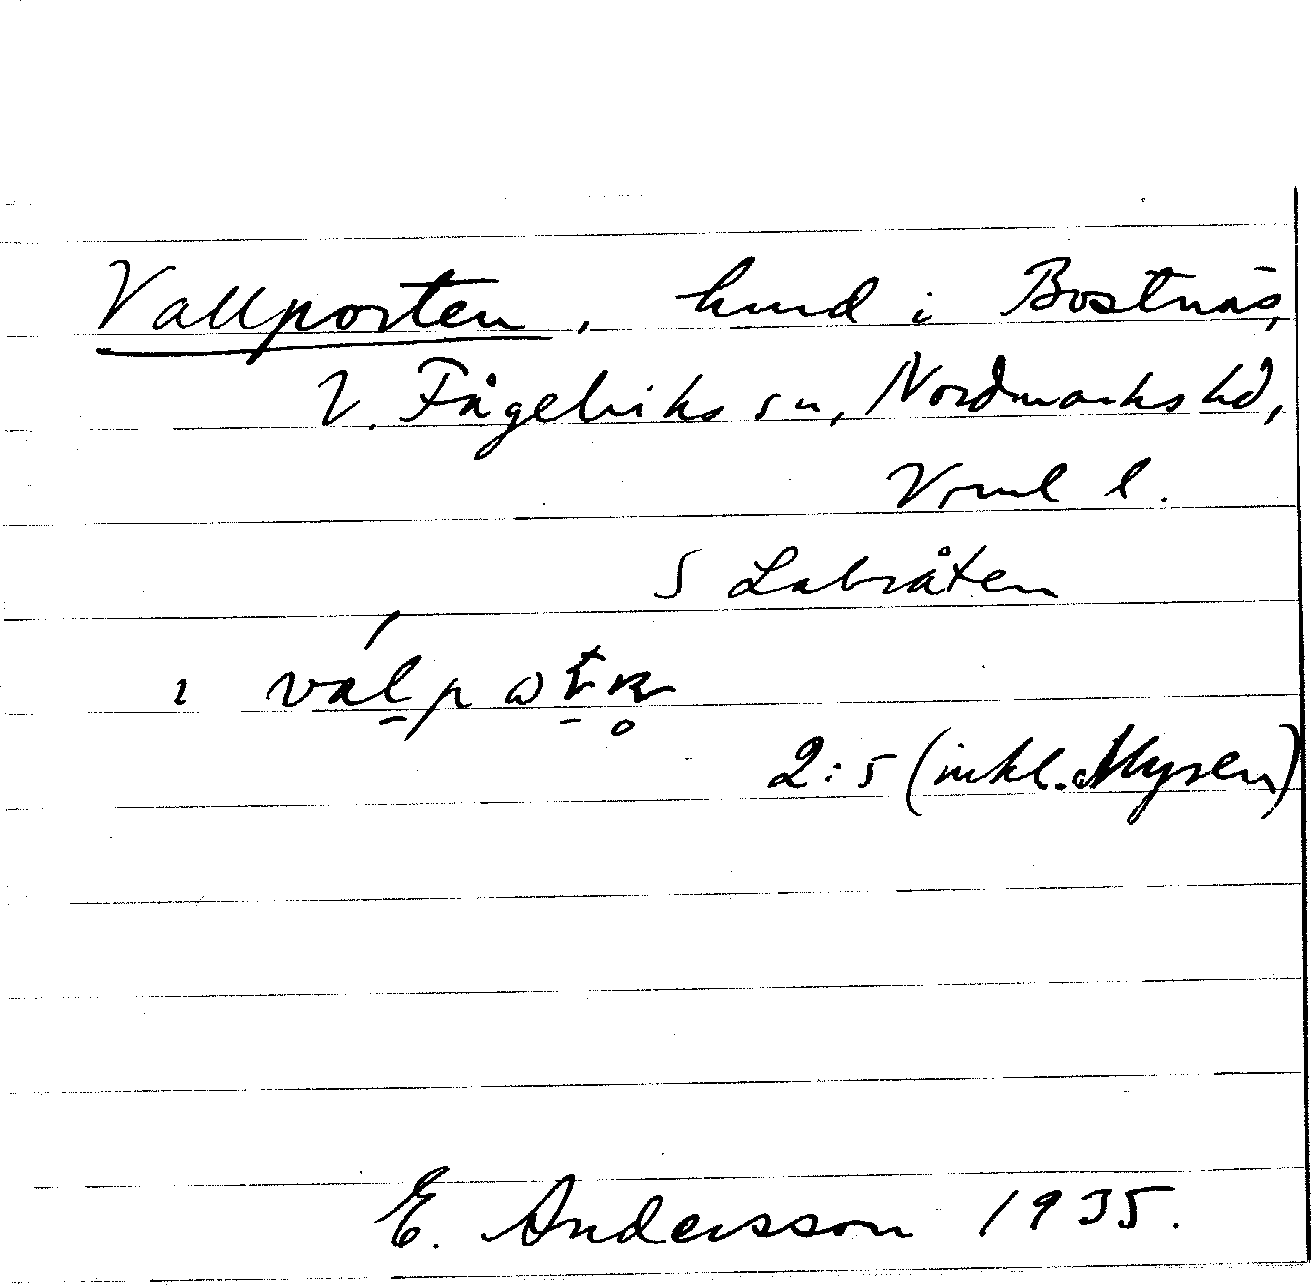 Vallporten, hmd i Bostnäs,
V. Fågelviks sn, Nordmarks hd,
Vrml l.
S Labråten
1 válpωtṇ
2:5 (inkl. Mysen)
E. Andersson 1935.